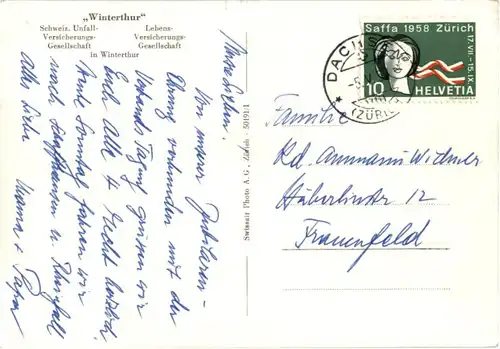 „Winterthur"
Schweiz. Unfall-
Versicherungs-
Gesellschaft
Lebens-
Versicherungs-
Gesellschaft
in Winterthur
Meine Lieben.
Von unserer Jubilaren-
Ehrung verbunden mit der
Verbands Tagung grüssen wir
Euch Alle 4 Recht herzlich.
Heute Sonntag fahren wir
nach Schaffhausen u. Rheinfall
Alles Liebe Mama + Papa
Swissair Photo A. G., Zürich - 50191/1
Saffa 1958 Zürich
17.VII.-15.IX.
10 HELVETIA
DACHSEN
(ZÜRICH)
Familie
Rd. Ammann Widmer
Häberlinstr 12
Frauenfeld